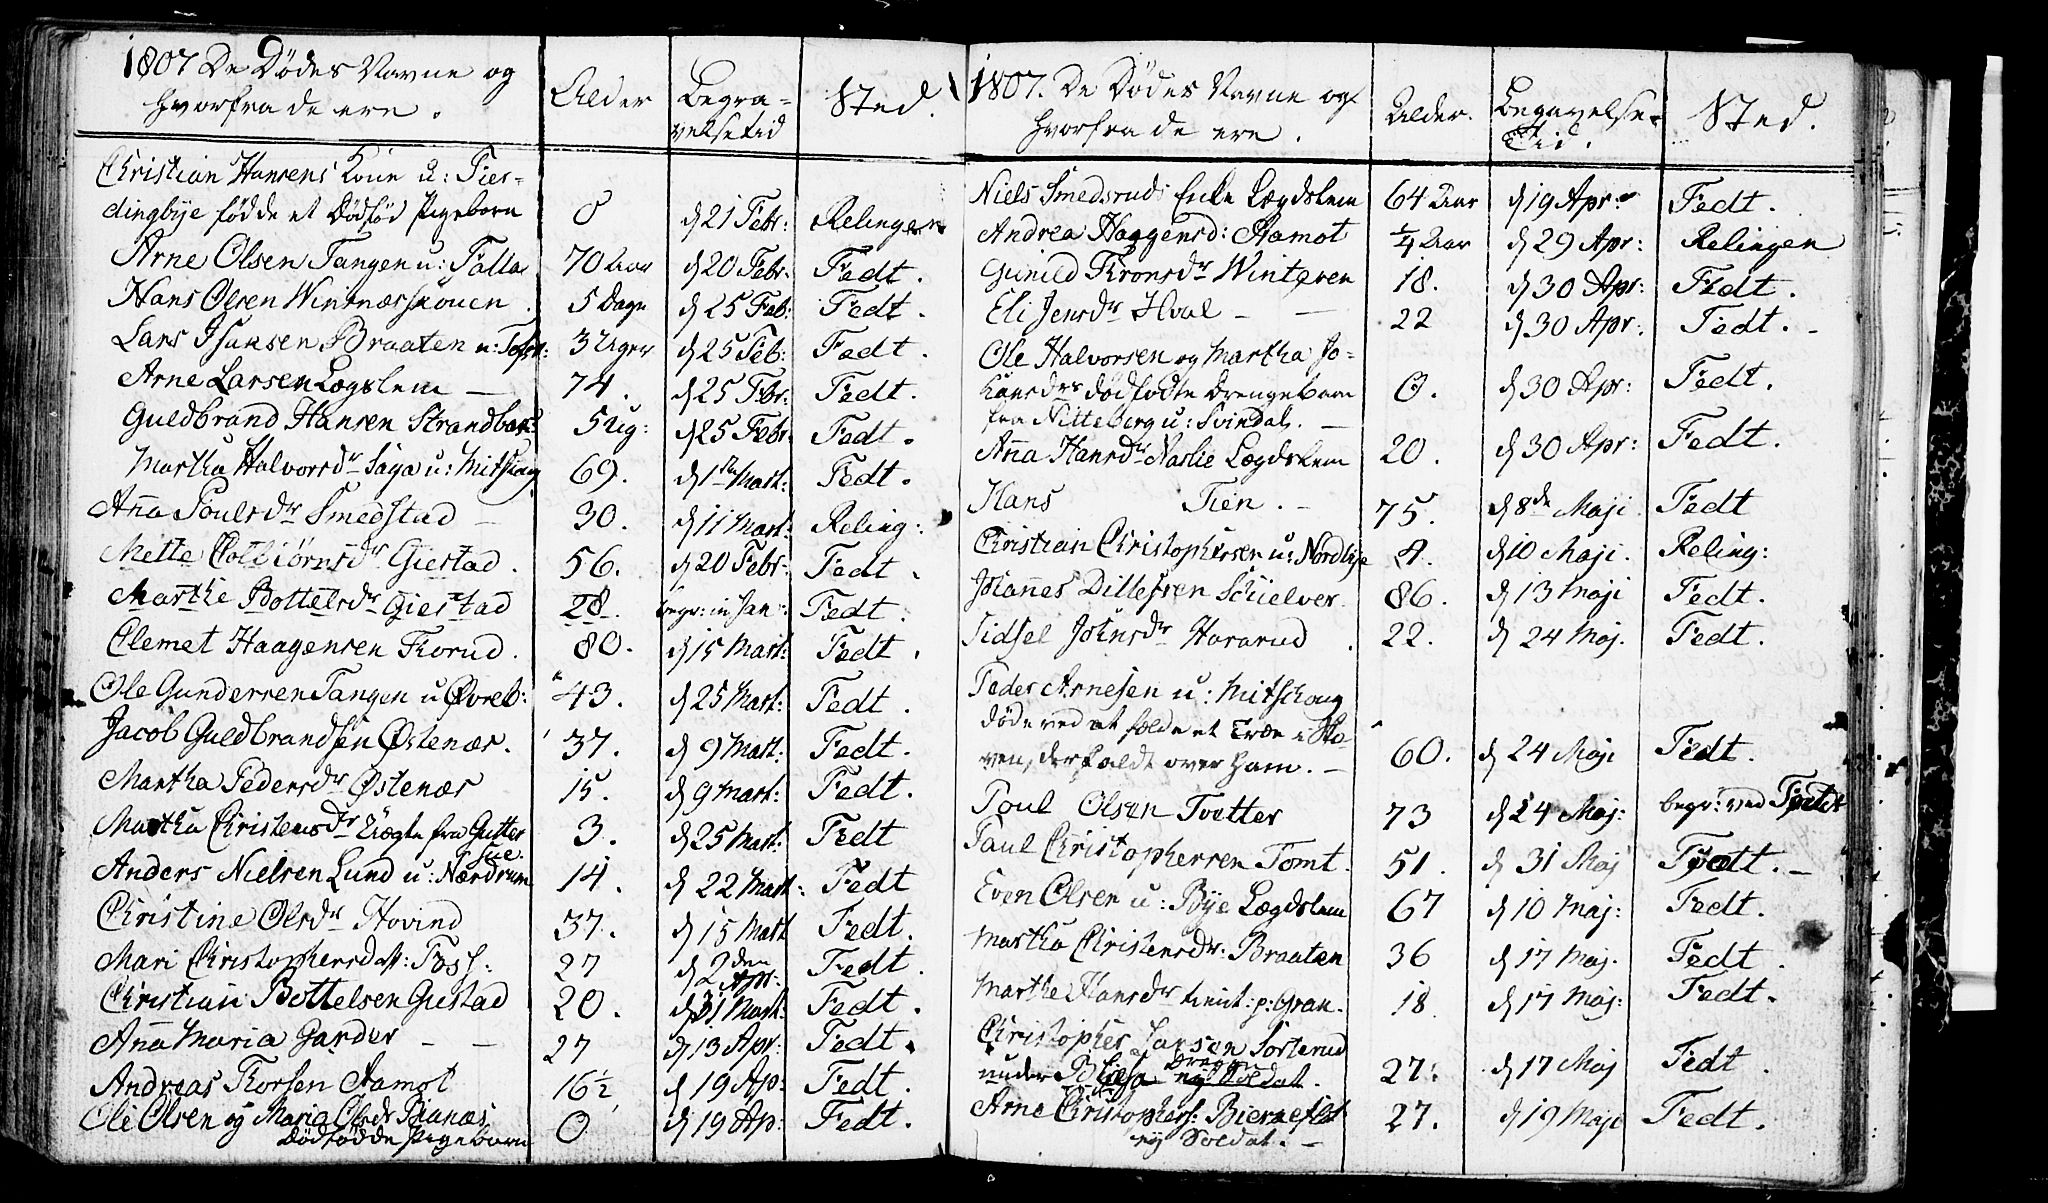 1807 De Dødes Navne og
hvorfra de ere.
Alder
Begra-
velsetid
Sted.
Christian Hansens Kone u: Fier-
dingbye fødde et Dødfød Pigebarn 0 d 21 Febr: Relingen
Arne Olsen Tangen u: Falla 70 Aar d 20 Febr: Fedt.
Hans Olsen Winnæsskouen 5 Dage d 25 Feb: Fedt.
Lars Braaten u: 3 Uger d 25 Feb: Fedt.
Arne Larsen Lægslem 74. d 25 Febr: Fedt.
Guldbrand Hansen 5 Ug: d 25 Febr: Fedt.
Martha Halvorsdr Saga u: Mitskoug 69. d 1ste Mart: Fedt.
Anna Poulsdr Smedstad 30. d 11 Mart: Reling:
Mette Tolbiørnsdr Giestad. 56. d 20 Febr: Fedt.
Marthe Bottelsdr Giestad 28. begr: in Jan: Fedt.
Clemet Haagensen Korud. 80. d 15 Mart: Fedt.
Ole Gundersen Tangen u Øvreb: 43. d 25 Mart: Fedt.
Jacob Guldbrandsen Østenæs. 37. d 9 Mart: Fedt.
Martha Pedersdr Østenæs 15. d 9 Mart: Fedt.
Martha Christensdr fra Gutter
sue. 3. d 25 Mart: Fedt
Anders Nielsen Lund u: Nærdrum 14. d 22 Mart: Fedt
Christine Olsdr Hovind 37. d 15 Mart Fedt.
Mari Christophersdatt: Foss: 27 d 2den Apr: Fedt.
Christian Bottelsen Giestad 20. d 31 Mart: Fedt.
Anna Maria Garder 27 d 13 Apr: Fedt.
Andreas Torsen Aamot 16½ d 19 Ap: Fedt.
Ole Olsen og Maria Olsdr
Dødfødde Pigebarn 0 d 19 Ap: Fedt.
1807. De Dødes Navne og
hvorfra de ere.
Alder.
Begravelse-
Tid.
Sted.
Niels Smedsruds Enke Lægdslem 64 Aar d 19 Apr: Fedt.
Andrea Haagensd: Aamot ¼ Aar d 29 Apr: Relingen
Gunild Tronsdr Winteren 18. d 30 Apr: Fedt.
Eli Jensdr Hval 22 d 30 Apr: Fedt.
Ole Halvorsen og Martha Jo-
hansdrs dødfødte Drengebarn 0. d 30 Apr: Fedt.
fra Nitteberg u: Svindal.
Anna Hansdr Naslie Lægdslem 20. d 30 Apr: Fedt.
Hans Tien. 75. d 8de Maji Fedt
Christian Christophersen u: Nordbye 4. d 10 Maji. Reling:
Johannes Ditlefsen Schielver 86. d 13 Maji Fedt.
Sidsel Johnsdr Hararud 22. d 24 Maj. Fedt.
Peder Arnesen u: Mitskoug
døde ved at fælde et Træe i Sko-
ven, der faldt over ham. 60. d 24 Maji Fedt.
Poul Olsen Tvetter 73 d 24 Maj: begr: ved Fedt
Paul Christophersen Tomt. 51. d 31 Maj Fedt.
Even Olsen u: Bye Lægdslem 67 d 10 Maj: Fedt.
Martha Christensdr: Braaten 36 d 17 Maj. Fedt
Marthe Hansdr tient: p: Gran. 18 d 17 Maj: Fedt.
Christopher Larsen Sorterud
under nye Soldat. 27: d 17 Maj Fedt.
Arne Christophers: 27. d 19 Maji Fedt.
ny Soldat.